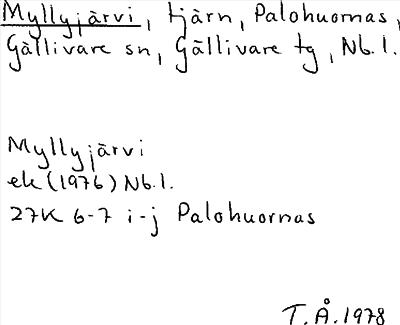 Myllyjärvi, tjärn, Palohuornas,
Gällivare sn, Gällivare tg, Nb. l.
Myllyjärvi
ek (1976) Nb. l.
27K 6-7 i-j Palohuornas
T. Å. 1978